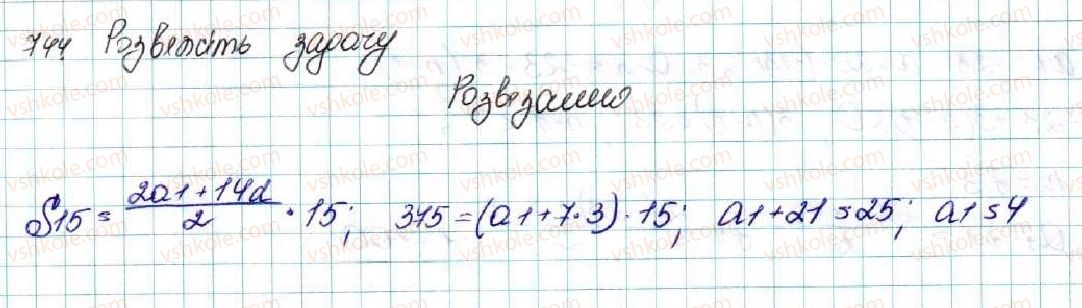 744 Розвяжіть задачу
Розвязання
S15 = \frac{2a1+14d}{2} · 15; 375 = (a1+7·3)·15; a1+21=25; a1=4